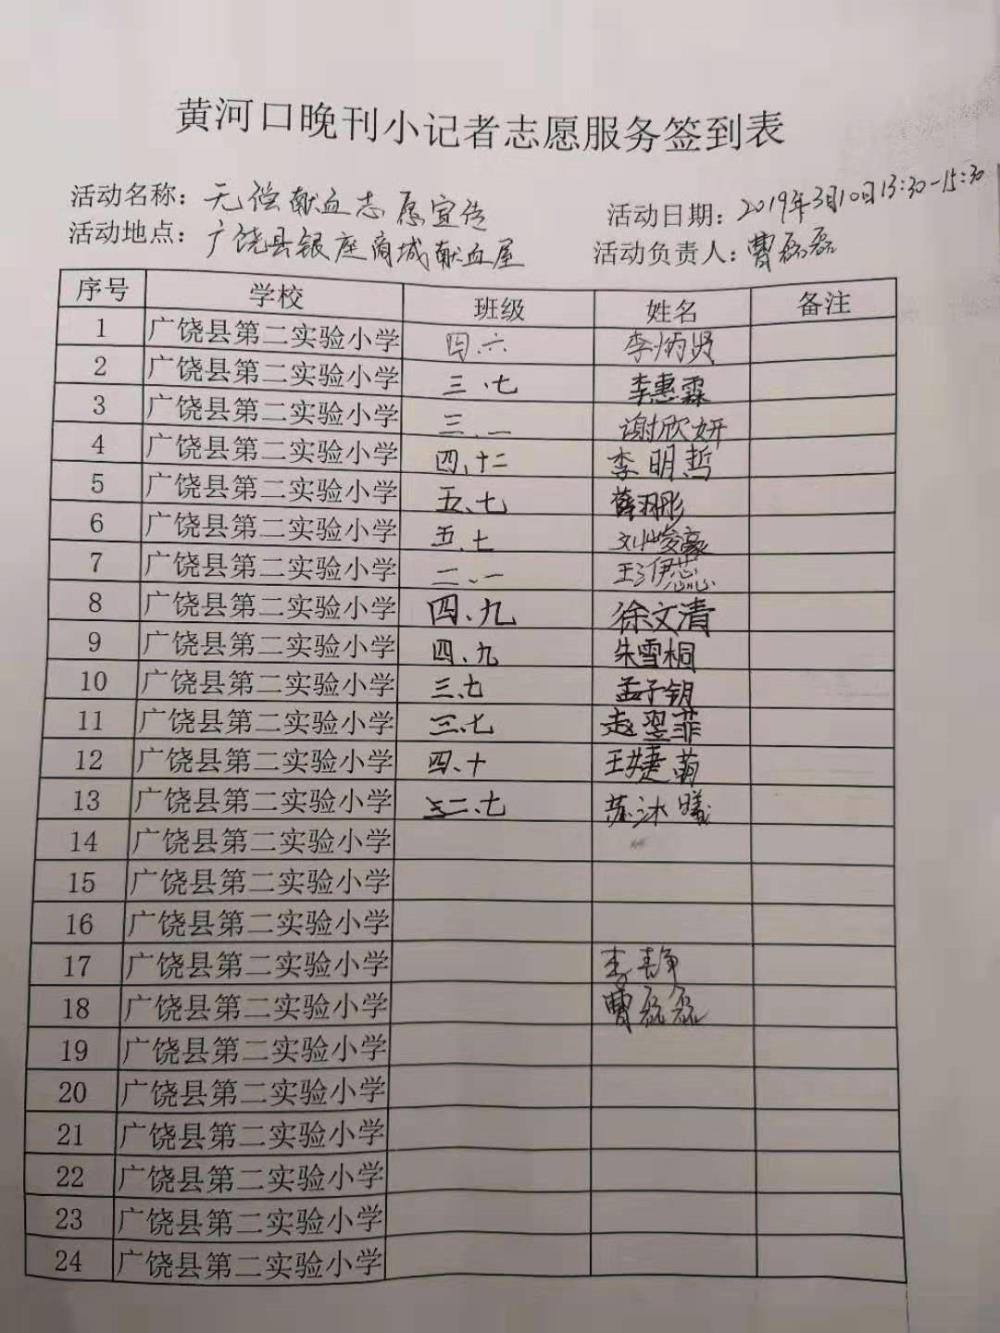 黄河口晚刊小记者志愿服务签到表
活动名称：无偿献血志愿宣传 活动日期：2019年3月10日13:30-15:30
活动地点：广饶县银座商城献血屋 活动负责人：曹磊磊
序号 学校 班级 姓名 备注
1 广饶县第二实验小学 四.六 李炳贤
2 广饶县第二实验小学 三.七 李惠霖
3 广饶县第二实验小学 三.一 谢欣妍
4 广饶县第二实验小学 四.十二 李明哲
5 广饶县第二实验小学 五.七 薛羽彤
6 广饶县第二实验小学 五.七 刘峻豪
7 广饶县第二实验小学 二.一 王伊蕊
8 广饶县第二实验小学 四、九 徐文清
9 广饶县第二实验小学 四.九 朱雪桐
10 广饶县第二实验小学 三.七 孟子钥
11 广饶县第二实验小学 三.七 赵翌菲
12 广饶县第二实验小学 四.十 王婕萌
13 广饶县第二实验小学 二.七 苏沐曦
14 广饶县第二实验小学
15 广饶县第二实验小学
16 广饶县第二实验小学
17 广饶县第二实验小学 李静
18 广饶县第二实验小学 曹磊磊
19 广饶县第二实验小学
20 广饶县第二实验小学
21 广饶县第二实验小学
22 广饶县第二实验小学
23 广饶县第二实验小学
24 广饶县第二实验小学